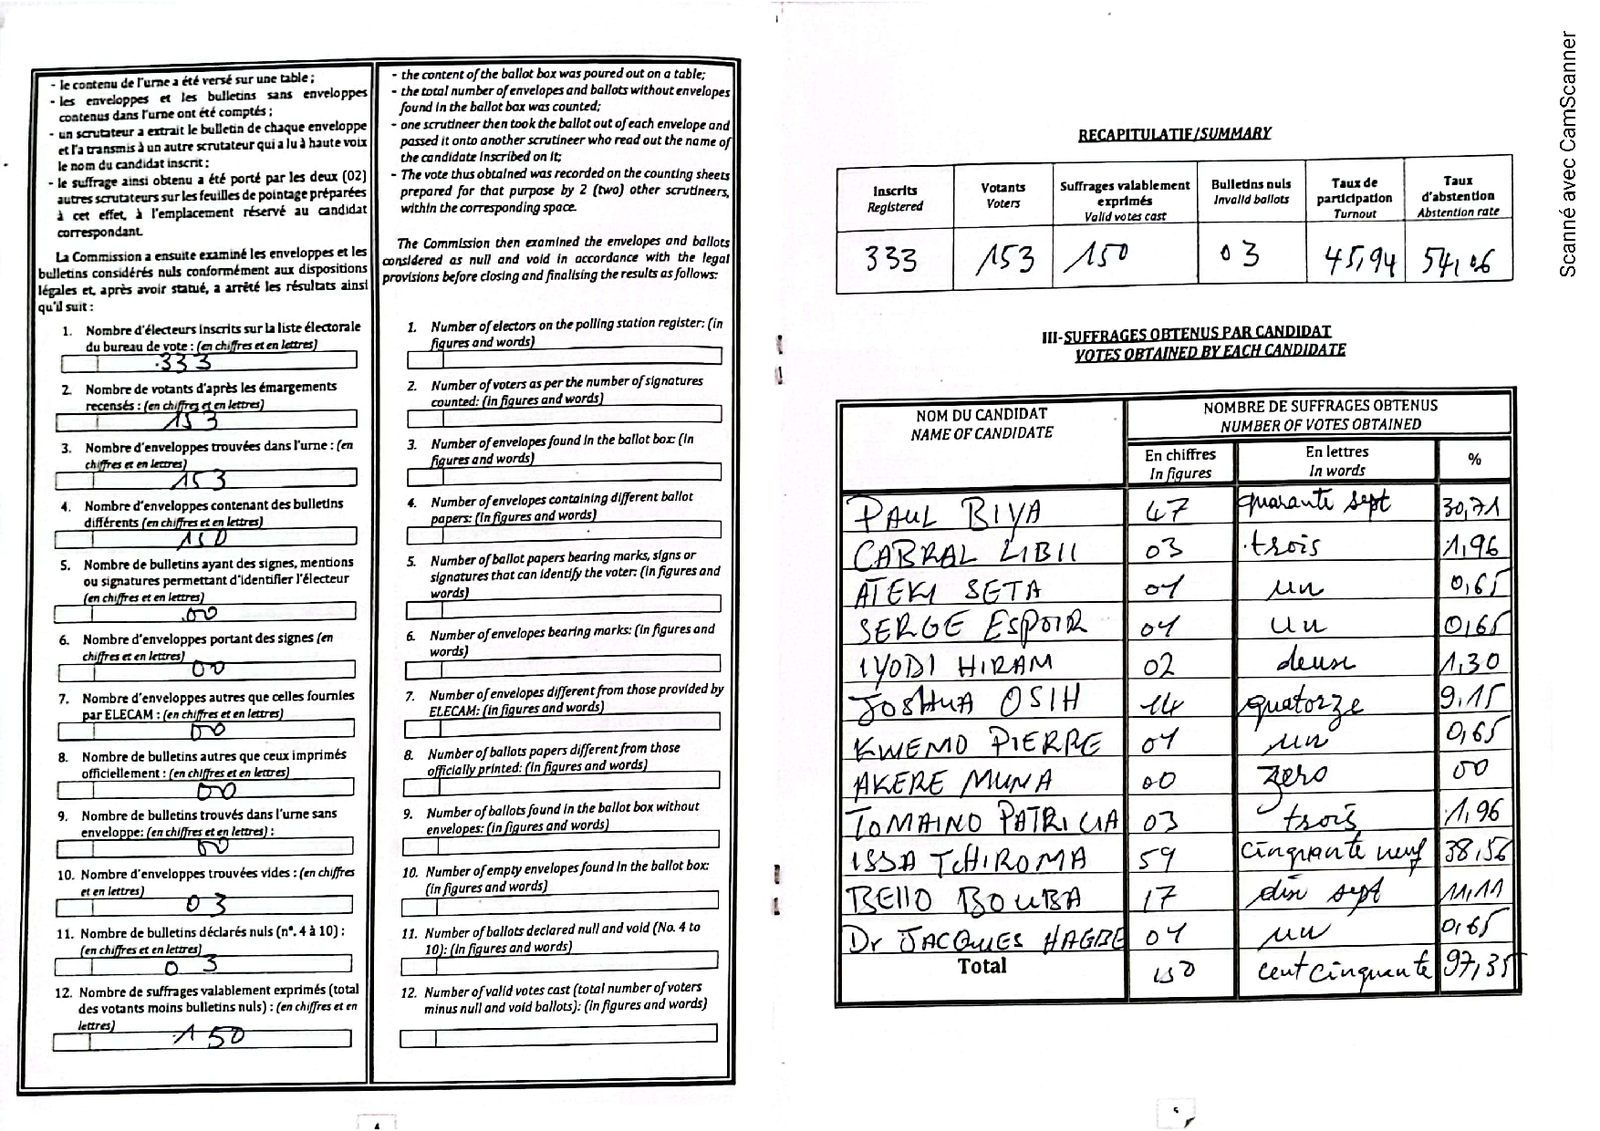 - le contenu de l'urne a été versé sur une table ;
- les enveloppes et les bulletins sans enveloppes
contenus dans l'urne ont été comptés ;
- un scrutateur a extrait le bulletin de chaque enveloppe
et l'a transmis à un autre scrutateur qui a lu à haute voix
le nom du candidat inscrit ;
- le suffrage ainsi obtenu a été porté par les deux (02)
autres scrutateurs sur les feuilles de pointage préparées
à cet effet, à l'emplacement réservé au candidat
correspondant.
La Commission a ensuite examiné les enveloppes et les
bulletins considérés nuls conformément aux dispositions
légales et, après avoir statué, a arrêté les résultats ainsi
qu'il suit :
1. Nombre d'électeurs inscrits sur la liste électorale
du bureau de vote : (en chiffres et en lettres)
333
2. Nombre de votants d'après les émargements
recensés : (en chiffres et en lettres)
153
3. Nombre d'enveloppes trouvées dans l'urne : (en
chiffres et en lettres)
153
4. Nombre d'enveloppes contenant des bulletins
différents (en chiffres et en lettres)
150
5. Nombre de bulletins ayant des signes, mentions
ou signatures permettant d'identifier l'électeur
(en chiffres et en lettres)
00
6. Nombre d'enveloppes portant des signes (en
chiffres et en lettres)
00
7. Nombre d'enveloppes autres que celles fournies
par ELECAM : (en chiffres et en lettres)
00
8. Nombre de bulletins autres que ceux imprimés
officiellement : (en chiffres et en lettres)
00
9. Nombre de bulletins trouvés dans l'urne sans
enveloppe: (en chiffres et en lettres) :
00
10. Nombre d'enveloppes trouvées vides : (en chiffres
et en lettres)
03
11. Nombre de bulletins déclarés nuls (n°. 4 à 10) :
(en chiffres et en lettres)
03
12. Nombre de suffrages valablement exprimés (total
des votants moins bulletins nuls) : (en chiffres et en
lettres)
150
- the content of the ballot box was poured out on a table;
- the total number of envelopes and ballots without envelopes
found in the ballot box was counted;
- one scrutineer then took the ballot out of each envelope and
passed it onto another scrutineer who read out the name of
the candidate inscribed on it;
- The vote thus obtained was recorded on the counting sheets
prepared for that purpose by 2 (two) other scrutineers,
within the corresponding space.
The Commission then examined the envelopes and ballots
considered as null and void in accordance with the legal
provisions before closing and finalising the results as follows:
1. Number of electors on the polling station register: (in
figures and words)
2. Number of voters as per the number of signatures
counted: (in figures and words)
3. Number of envelopes found in the ballot box: (in
figures and words)
4. Number of envelopes containing different ballot
papers: (in figures and words)
5. Number of ballot papers bearing marks, signs or
signatures that can identify the voter: (in figures and
words)
6. Number of envelopes bearing marks: (in figures and
words)
7. Number of envelopes different from those provided by
ELECAM: (in figures and words)
8. Number of ballots papers different from those
officially printed: (in figures and words)
9. Number of ballots found in the ballot box without
envelopes: (in figures and words)
10. Number of empty envelopes found in the ballot box:
(in figures and words)
11. Number of ballots declared null and void (No. 4 to
10): (in figures and words)
12. Number of valid votes cast (total number of voters
minus null and void ballots): (in figures and words)
4
RECAPITULATIF/SUMMARY
Inscrits Registered Votants Voters Suffrages valablement exprimés Valid votes cast Bulletins nuls Invalid ballots Taux de participation Turnout Taux d'abstention Abstention rate
333 153 150 03 45,94 54,06
III-SUFFRAGES OBTENUS PAR CANDIDAT
VOTES OBTAINED BY EACH CANDIDATE
NOM DU CANDIDAT NOMBRE DE SUFFRAGES OBTENUS
NAME OF CANDIDATE NUMBER OF VOTES OBTAINED
En chiffres En lettres %
In figures In words
PAUL BIYA 47 quarante sept 30,71
CABRAL LIBII 03 trois 1,96
ATEKI SETA 01 un 0,65
SERGE ESPOIR 01 un 0,65
IYODI HIRAM 02 deux 1,30
JOSHUA OSIH 14 quatorze 9,15
KWEMO PIERRE 01 un 0,65
AKERE MUNA 00 zero 00
TOMAINO PATRICIA 03 trois 1,96
ISSA TCHIROMA 59 cinquante neuf 38,56
BELLO BOUBA 17 dix sept 11,11
Dr JACQUES HAGBE 01 un 0,65
Total 150 cent cinquante 97,35
5
Scanné avec CamScanner